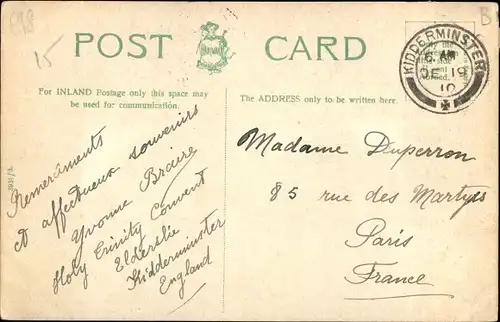 C98
15
B
POST CARD
For INLAND Postage only this space may
be used for communication.
The ADDRESS only to be written here.
KIDDERMINSTER
DE 19
10
Remerciments
et affectueux souvenirs
Yvonne Braire
Holy Trinity Convent
Elderslie
Kidderminster
England
Madame Duperron
85 rue des Martyrs
Paris
France